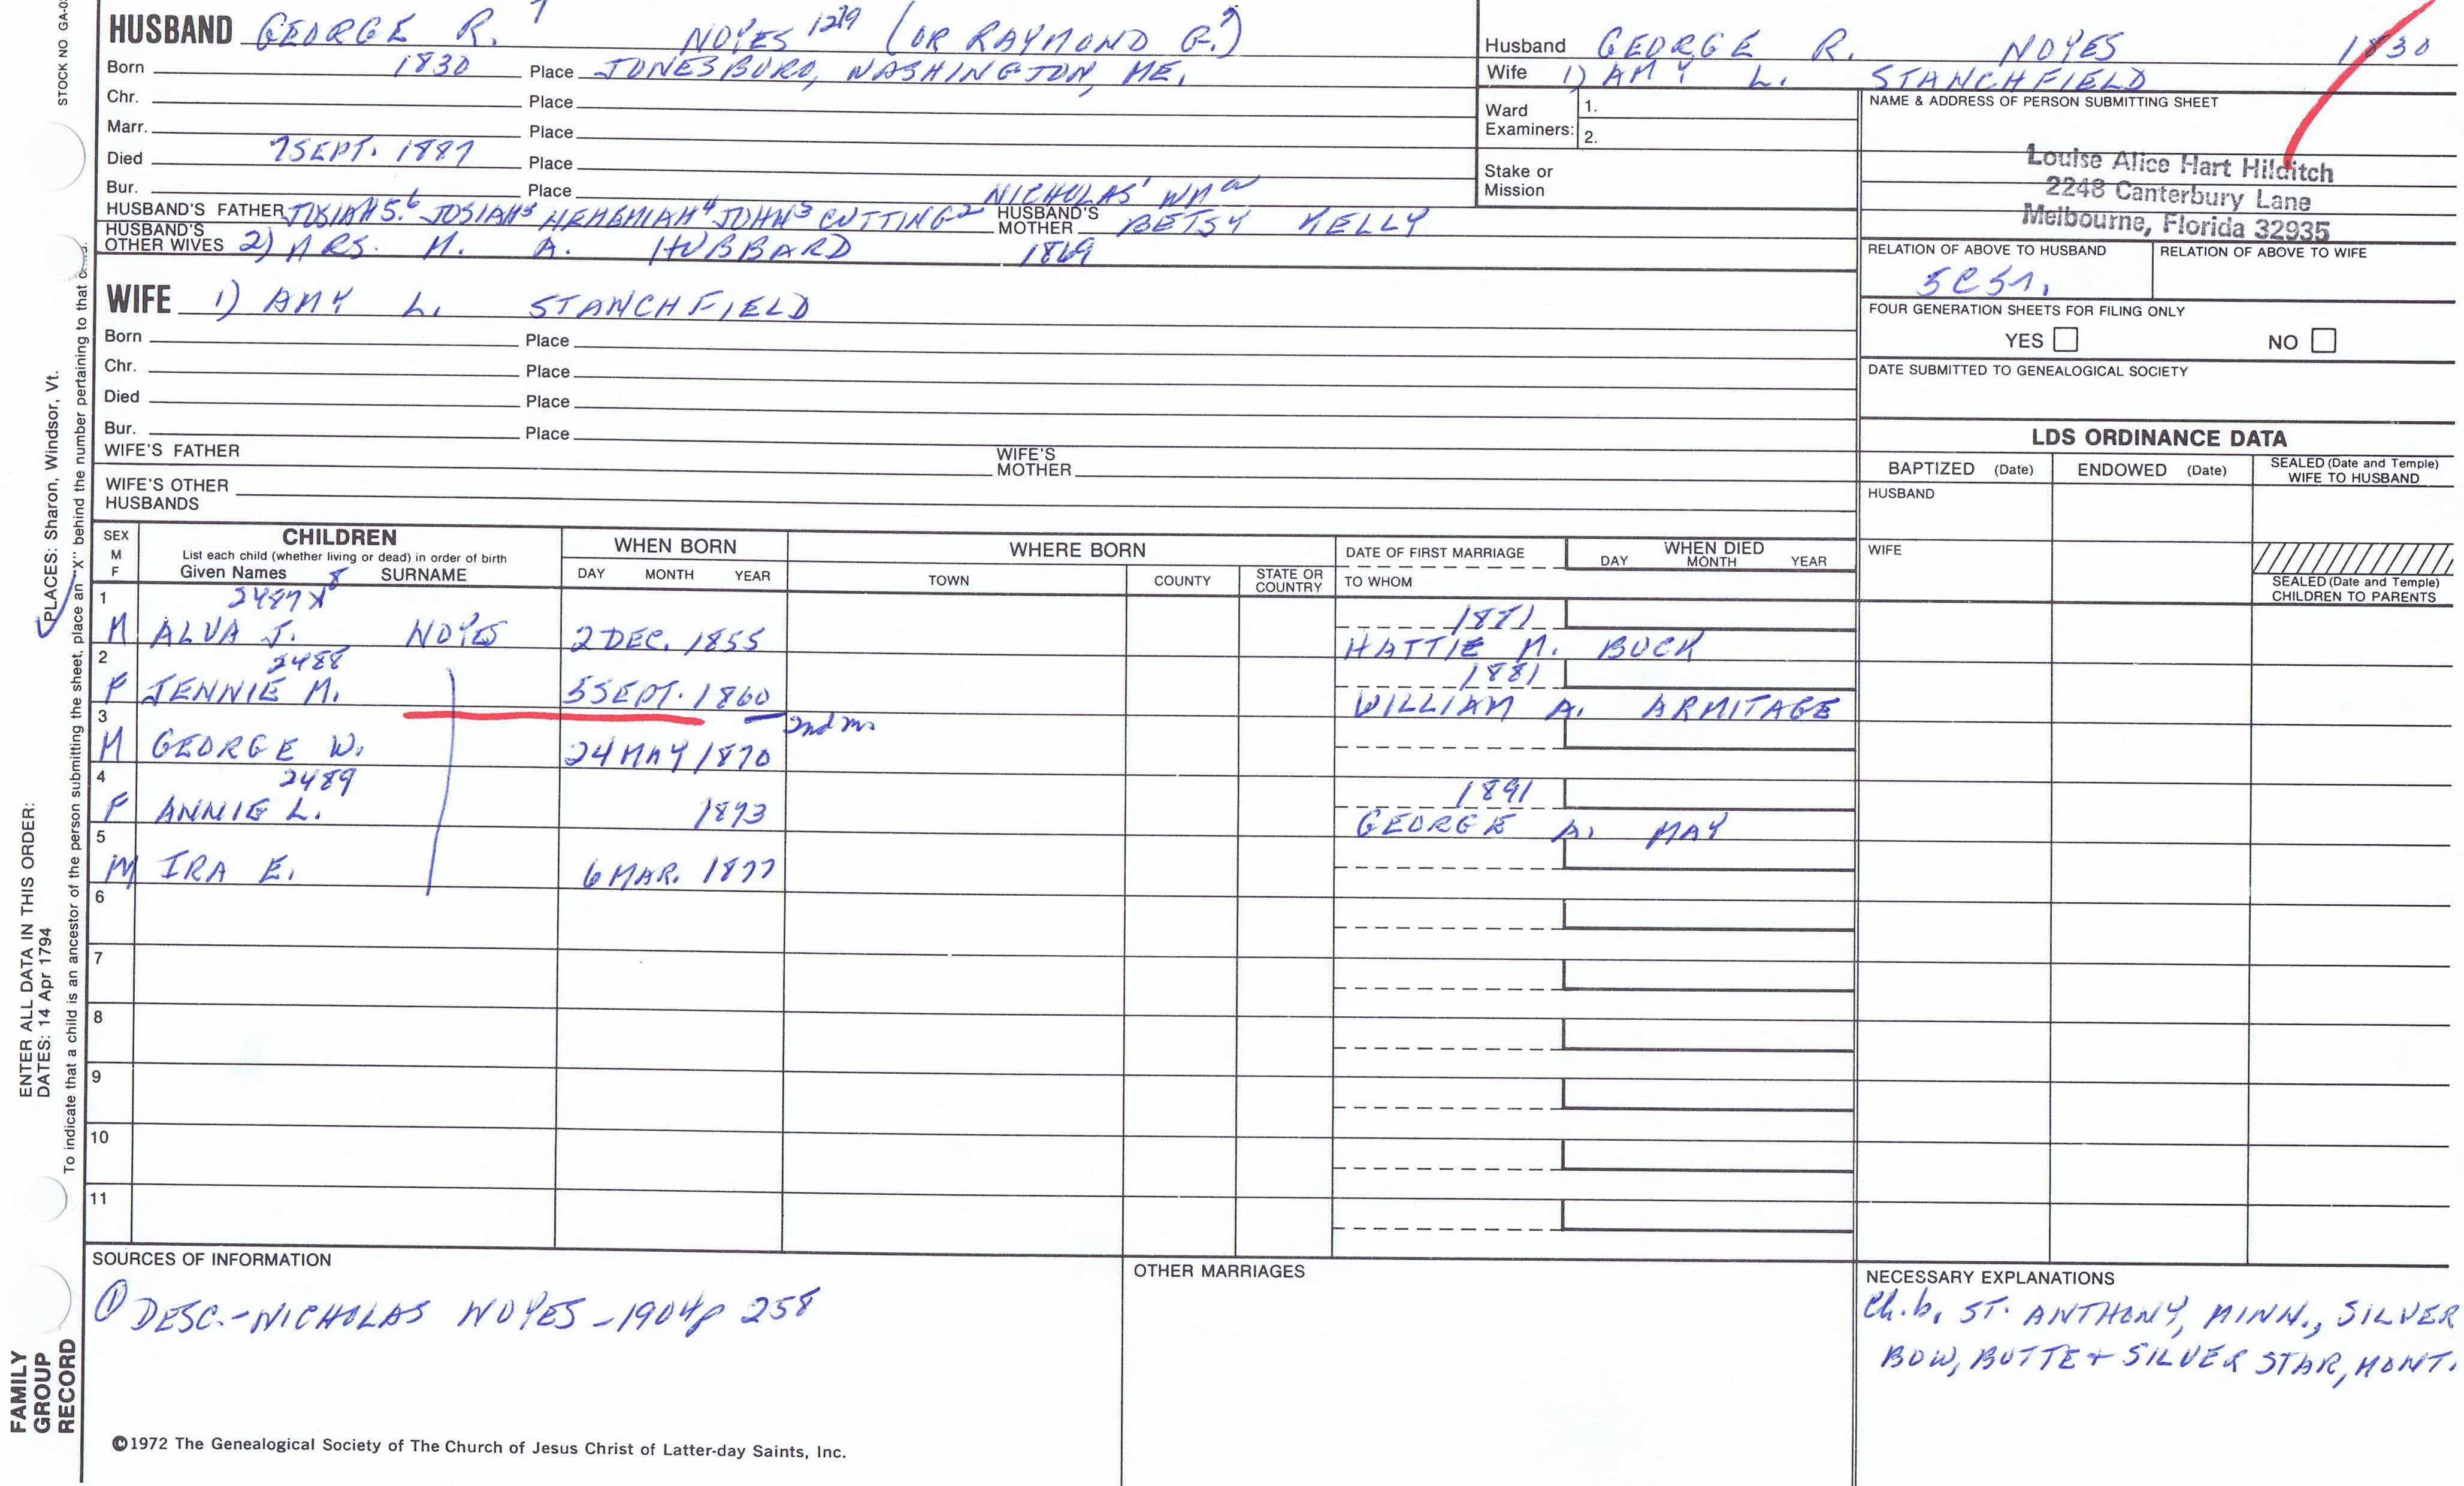 STOCK NO GA-0
HUSBAND GEORGE R. 7 NOYES 1219 (OR RAYMOND G.?)
Born 1830 Place JONESBORO, WASHINGTON, ME.
Chr. Place
Marr. Place
Died 7 SEPT. 1887 Place
Bur. Place
NICHOLAS' WM
HUSBAND'S FATHER JOSIAH 5.6 JOSIAH5 NEHEMIAH4 JOHN3 CUTTING2 HUSBAND'S MOTHER BETSY KELLY
HUSBAND'S OTHER WIVES 2) MRS. M. A. HUBBARD 1869
WIFE 1) AMY L. STANCHFIELD
Born Place
Chr. Place
Died Place
Bur. Place
WIFE'S FATHER WIFE'S MOTHER
WIFE'S OTHER HUSBANDS
Husband GEORGE R. NOYES 1830
Wife 1) AMY L. STANCHFIELD
Ward Examiners: 1.
2.
Stake or Mission
NAME & ADDRESS OF PERSON SUBMITTING SHEET
Louise Alice Hart Hilditch
2248 Canterbury Lane
Melbourne, Florida 32935
RELATION OF ABOVE TO HUSBAND RELATION OF ABOVE TO WIFE
FOUR GENERATION SHEETS FOR FILING ONLY
YES NO
DATE SUBMITTED TO GENEALOGICAL SOCIETY
LDS ORDINANCE DATA
BAPTIZED (Date) ENDOWED (Date) SEALED (Date and Temple) WIFE TO HUSBAND
HUSBAND
WIFE
SEALED (Date and Temple) CHILDREN TO PARENTS
SEX M F CHILDREN WHEN BORN WHERE BORN DATE OF FIRST MARRIAGE WHEN DIED
List each child (whether living or dead) in order of birth
Given Names 8 SURNAME DAY MONTH YEAR TOWN COUNTY STATE OR COUNTRY TO WHOM DAY MONTH YEAR
1 2487 X 1881
M ALVA J. NOYES 2 DEC. 1855 HATTIE M. BUCK
2 2488 1881
F JENNIE M. 5 SEPT. 1860 WILLIAM A. ARMITAGE
3 2nd m.
M GEORGE W. 24 MAY 1870
4 2489 1891
F ANNIE L. 1873 GEORGE A. MAY
5
M IRA E. 6 MAR. 1877
6
7
8
9
10
11
SOURCES OF INFORMATION
① DESC.-NICHOLAS NOYES - 1904 p 258
OTHER MARRIAGES
NECESSARY EXPLANATIONS
Ch. b. ST. ANTHONY, MINN., SILVER
BOW, BUTTE + SILVER STAR, MONT.
©1972 The Genealogical Society of The Church of Jesus Christ of Latter-day Saints, Inc.
FAMILY
GROUP
RECORD
ENTER ALL DATA IN THIS ORDER:
DATES: 14 Apr 1794
PLACES: Sharon, Windsor, Vt.
To indicate that a child is an ancestor of the person submitting the sheet, place an "X" behind the number pertaining to that